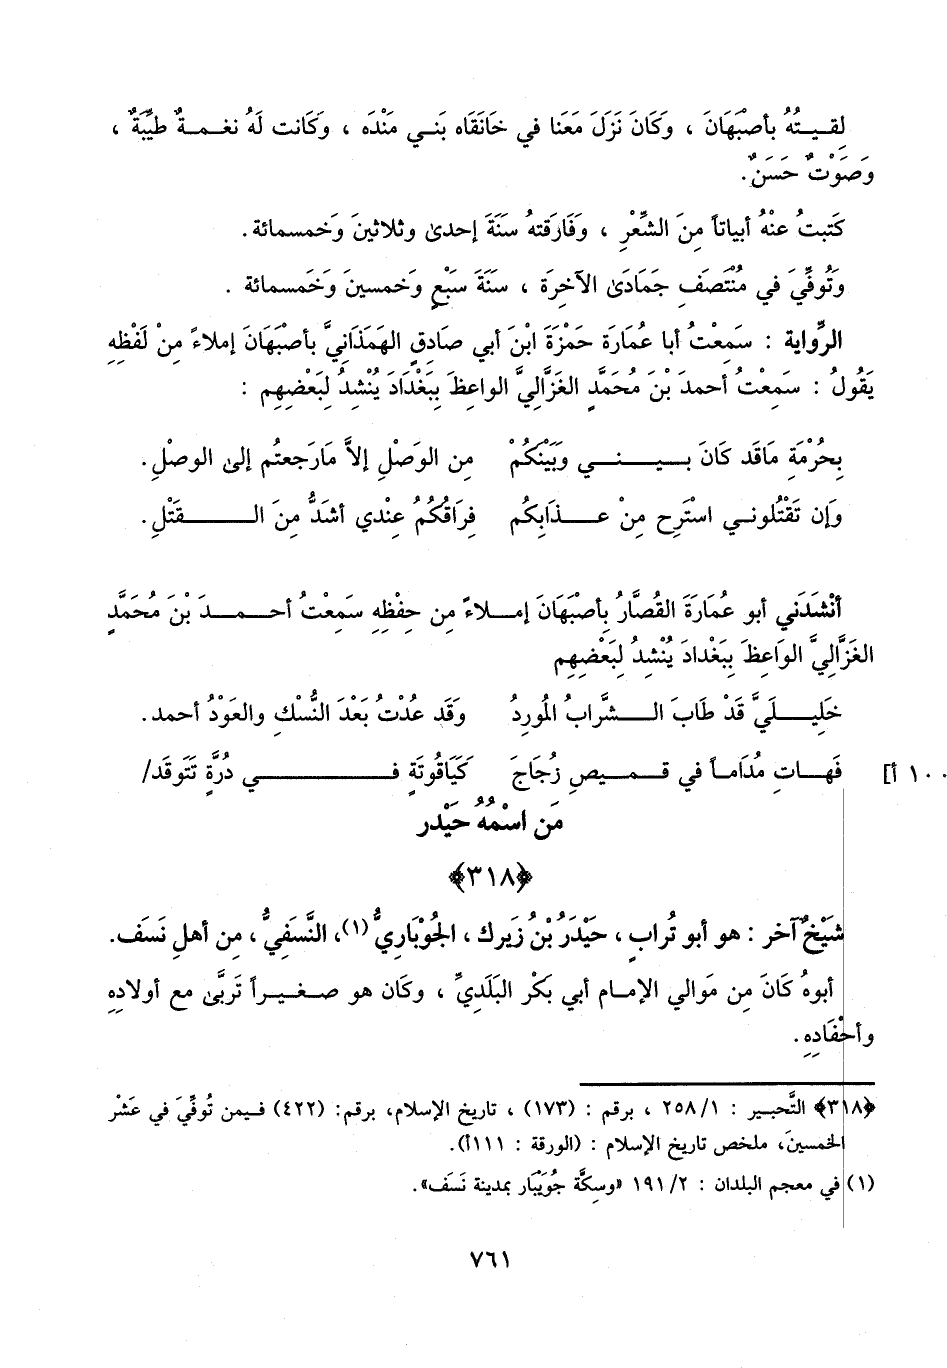 لقيتُهُ بأصبَهَانَ ، وَكَانَ نَزَلَ مَعَنا في خَانَقَاه بَني مَنْدَه ، وَكَانت لَهُ نغمةٌ طيِّبَةٌ ،
وَصَوْتٌ حَسَنٌ.
كَتبتُ عنْهُ أبياتاً مِنَ الشِّعْرِ ، وَفَارَقتهُ سنَةَ إحدىٰ وثلاثينَ وَخمسمائة .
وَتُوفِّيَ في مُنْتَصَفِ جَمَادَىٰ الآخِرَة ، سَنَةَ سَبْعٍ وَخَمسينَ وَخَمسمائة .
الرِّواية : سَمِعْتُ أبا عُمَارَةَ حَمْزَةَ ابْنَ أبي صَادِقٍ الهَمَذَانِيَّ بأصْبَهَانَ إملاءً مِنْ لَفْظِهِ
يَقُولُ : سَمِعْتُ أحمدَ بْنَ مُحَمَّدٍ الغَزَّالِيَّ الواعِظَ بِبَغْدَادَ يُنْشِدُ لِبَعْضِهِم :
بِحُرْمَةِ مَاقَد كَانَ بَيني وَبَيْنَكُمْ مِن الوَصْلِ إلاَّ مَارَجعتُم إلىٰ الوصلِ.
وَإن تَقْتُلوني استَرِح مِنْ عذَابِكُم فِرَاقُكُمُ عِنْدي أشَدُّ مِنَ القَتْلِ.
أنْشَدَني أبو عُمَارَةَ القُصَّارُ بأصِبَهَانَ إملاءً مِن حِفْظِهِ سَمِعْتُ أحمدَ بْنَ مُحَمَّدٍ
الغَزَّالِيَّ الوَاعِظَ بِبَغْدادَ يُنْشِدُ لِبَعْضِهِم
خَلِيلَيَّ قَدْ طَابَ الشَّرابُ المُورِدُ وَقَد عُدْتُ بَعْدَ النُّسْكِ والعَوْدُ أحمد.
١٠٠ أ] فَهاتِ مُدَاماً في قميصِ زُجَاجَ كَيَاقُوتَةٍ في دُرَّةٍ تَتَوقد/
مَن اسْمُهُ حَيْدر
﴿٣١٨﴾
شَيْخٌ آخر : هو أبو تُرابٍ ، حَيْدَرُ بْنُ زُيَرك ، الجُوْبَاريُّ (١)، النَّسَفِيُّ ، مِن أهلِ نَسَف.
أبوهُ كَانَ مِن مَوالي الإمام أبي بَكْر البَلَديِّ ، وكان هو صغيراً تَرَبَّىٰ مع أولادِهِ
وأحْفَادِهِ .
﴿٣١٨﴾ التَّحبير : ٢٥٨/١ ، برقم : (١٧٣) ، تاريخ الإسلام، برقم: (٤٢٢) فيمن تُوفِّيَ في عَشْر
الخمسينَ، ملخص تاريخ الإسلام : (الورقة : ١١١أ).
(١) في معجم البلدان : ١٩١/٢ «وسِكَّة جُوَيْبَار بمدينة نَسَف».
٧٦١